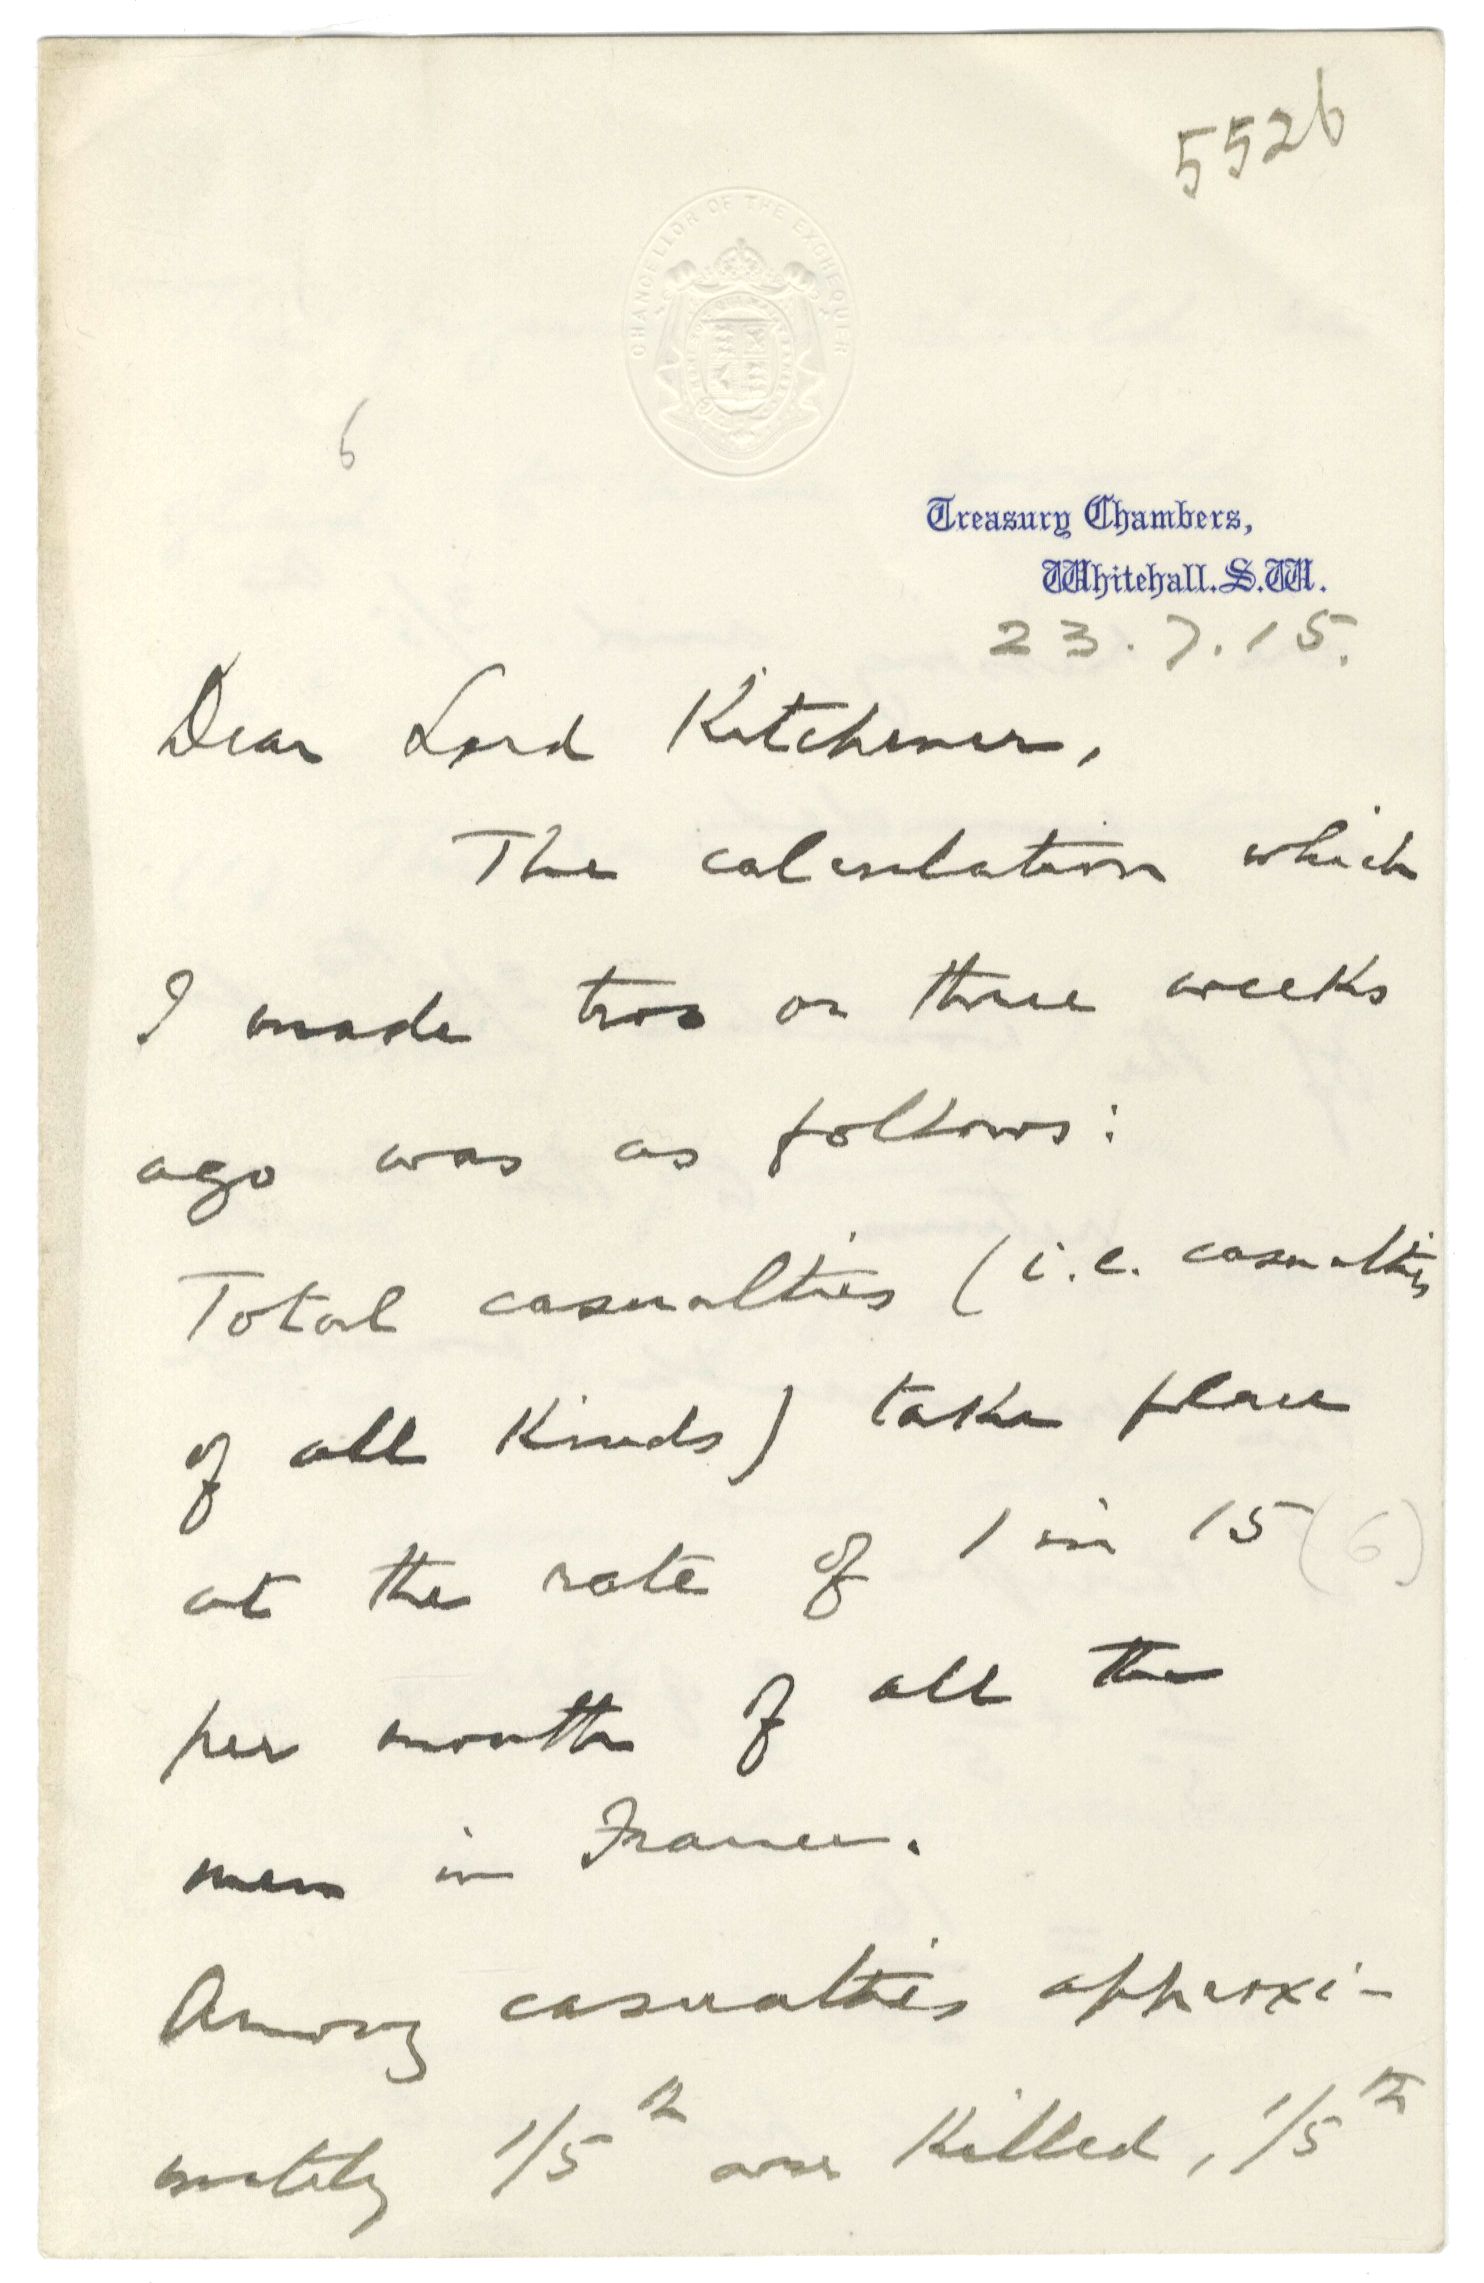 5526
CHANCELLOR OF THE EXCHEQUER
6
Treasury Chambers,
Whitehall. S.W.
23.7.15.
Dear Lord Kitchener,
The calculation which
I made two or three weeks
ago was as follows:
Total casualties (i.e. casualties
of all kinds) take place
at the rate of 1 in 15 (6)
per month of all the
men in France.
Among casualties approxi-
mately 1/5th are killed, 1/5th